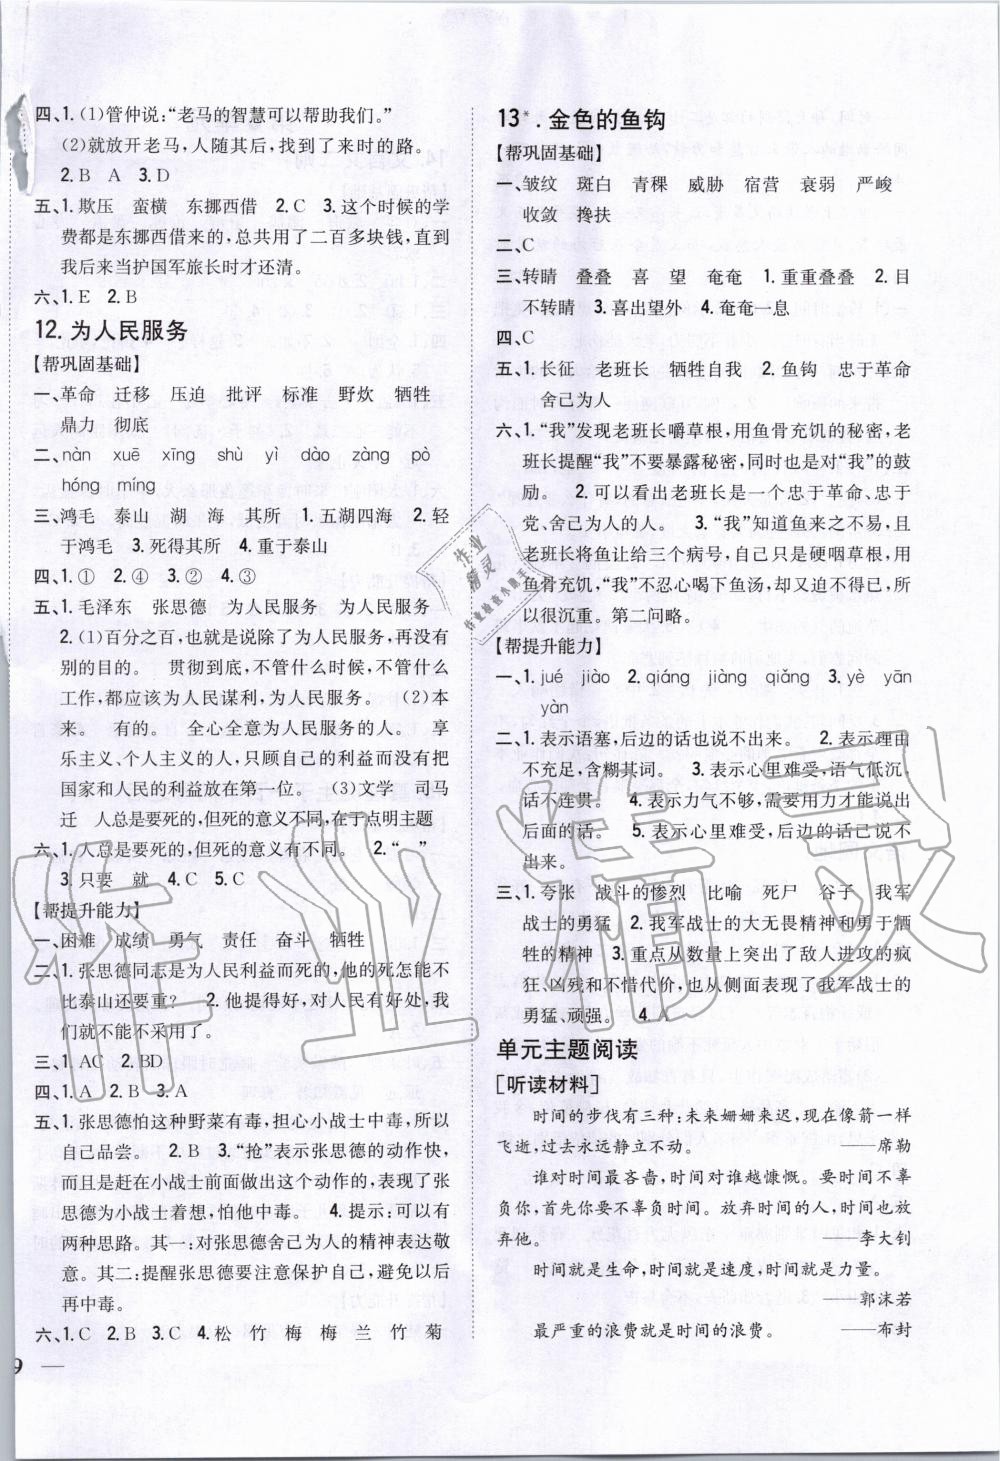 四、1. (1)管仲说：“老马的智慧可以帮助我们。”
(2)就放开老马，人随其后，找到了来时的路。
2. B　A　3. D
五、1. 欺压　蛮横　东挪西借　2. C　3. 这个时候的学
费都是东挪西借来的，总共用了二百多块钱，直到
我后来当护国军旅长时才还清。
六、1. E　2. B
12. 为人民服务
【帮巩固基础】
一、革命　迁移　压迫　批评　标准　野炊　牺牲
鼎力　彻底
二、nàn　xuē　xīng　shù　yì　dào　zàng　pò
hóng　míng
三、鸿毛　泰山　湖　海　其所　1. 五湖四海　2. 轻
于鸿毛　3. 死得其所　4. 重于泰山
四、1. ①　2. ④　3. ②　4. ③
五、1. 毛泽东　张思德　为人民服务　为人民服务
2. (1)百分之百，也就是说除了为人民服务，再没有
别的目的。　贯彻到底，不管什么时候，不管什么
工作，都应该为人民谋利，为人民服务。　(2)本
来。　有的。　全心全意为人民服务的人。　享
乐主义、个人主义的人，只顾自己的利益而没有把
国家和人民的利益放在第一位。　(3)文学　司马
迁　人总是要死的，但死的意义不同，在于点明主题
六、1. 人总是要死的，但死的意义有不同。　2. “　”
3. 只要　就　4. C　5. C
【帮提升能力】
一、困难　成绩　勇气　责任　奋斗　牺牲
二、1. 张思德同志是为人民利益而死的，他的死怎能不
比泰山还要重？　2. 他提得好，对人民有好处，我
们就不能不采用了。
三、1. AC　2. BD
四、1. A　2. B　3. A
五、1. 张思德怕这种野菜有毒，担心小战士中毒，所以
自己品尝。　2. B　3. “抢”表示张思德的动作快，
而且是赶在小战士前面做出这个动作的，表现了张
思德为小战士着想，怕他中毒。　4. 提示：可以有
两种思路。其一：对张思德舍己为人的精神表达敬
意。其二：提醒张思德要注意保护自己，避免以后
再中毒。
六、1. C　2. B　3. C　4. 松　竹　梅　梅　兰　竹　菊
9 —
13*. 金色的鱼钩
【帮巩固基础】
一、皱纹　斑白　青稞　威胁　宿营　衰弱　严峻
收敛　搀扶
二、C
三、转睛　叠叠　喜　望　奄奄　1. 重重叠叠　2. 目
不转睛　3. 喜出望外　4. 奄奄一息
四、C
五、1. 长征　老班长　牺牲自我　2. 鱼钩　忠于革命
舍己为人
六、1. “我”发现老班长嚼草根，用鱼骨充饥的秘密，老
班长提醒“我”不要暴露秘密，同时也是对“我”的鼓
励。　2. 可以看出老班长是一个忠于革命、忠于
党、舍己为人的人。　3. “我”知道鱼来之不易，且
老班长将鱼让给三个病号，自己只是硬咽草根，用
鱼骨充饥，“我”不忍心喝下鱼汤，却又迫不得已，所
以很沉重。第二问略。
【帮提升能力】
一、1. jué　jiào　2. qiáng　jiàng　qiǎng　3. yè　yān
yàn
二、1. 表示语塞，后边的话也说不出来。　2. 表示理由
不充足，含糊其词。　3. 表示心里难受，语气低沉，
话不连贯。　4. 表示力气不够，需要用力才能说出
后面的话。　5. 表示心里难受，后边的话已说不
出来。
三、1. 夸张　战斗的惨烈　比喻　死尸　谷子　我军
战士的勇猛　2. 我军战士的大无畏精神和勇于牺
牲的精神　3. 重点从数量上突出了敌人进攻的疯
狂、凶残和不惜代价，也从侧面表现了我军战士的
勇猛、顽强。　4. A
单元主题阅读
[听读材料]
时间的步伐有三种：未来姗姗来迟，现在像箭一样
飞逝，过去永远静立不动。　——席勒
谁对时间最吝啬，时间对谁越慷慨。要时间不辜
负你，首先你要不辜负时间。放弃时间的人，时间也放
弃他。　——李大钊
时间就是生命，时间就是速度，时间就是力量。
——郭沫若
最严重的浪费就是时间的浪费。　——布封
作业精灵
作业精灵
作业检查小助手